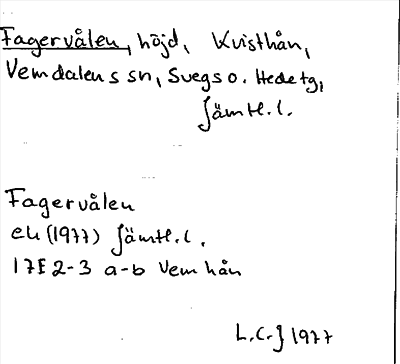 Fagervålen, höjd, Kvisthån,
Vemdalens sn, Svegs o. Hede tg,
Jämtl.l.
Fagervålen
ek (1977) Jämtl.l.
17E 2-3 a-b Vemhån
L.C.J 1977